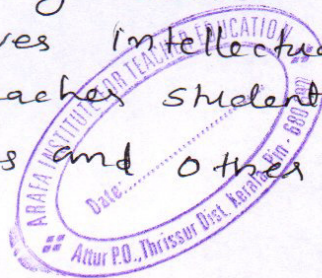 ves intellectu
aches student
s and other
ARAFA INSTITUTE FOR TEACHER EDUCATION
Date:
Attur P.O., Thrissur Dist. Kerala, Pin - 680